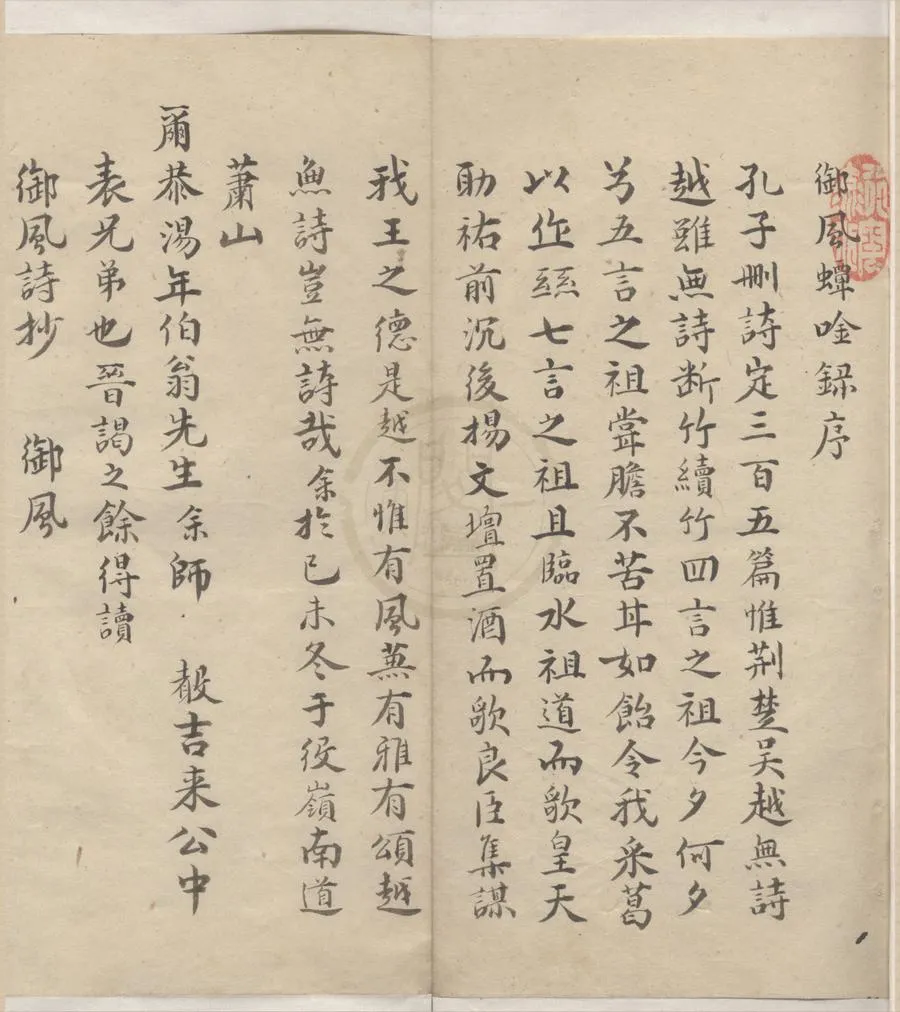 御風蟫唫録序
孔子刪詩定三百五篇惟荆楚吴越無詩
越雖無詩断竹續竹四言之祖今夕何夕
兮五言之祖甞膽不苦甘如飴令我采葛
以作絲七言之祖且臨水祖道而歌皇天
助祐前沉後揚文壇置酒而歌良臣集謀
我王之德是越不惟有風兼有雅有頌越
無詩豈無詩哉余於已未冬于役嶺南道
蕭山
爾恭湯年伯翁先生余師 
吉来公中
表兄弟也晉謁之餘得讀
御風詩抄 御風